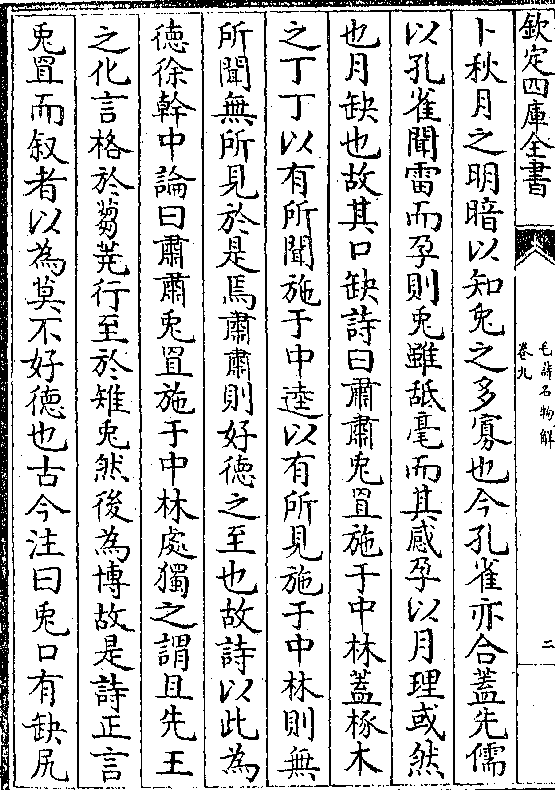 欽定四庫全書
毛詩名物解
卷九
二
卜秋月之明暗以知兔之多寡也今孔雀亦合蓋先儒
以孔雀聞雷而孕則兔雖舐毫而其感孕以月理或然
也月缺也故其口缺詩曰肅肅兔罝施于中林蓋椓木
之丁丁以有所聞施于中逵以有所見施于中林則無
所聞無所見於是焉肅肅則好徳之至也故詩以此為
徳徐幹中論曰肅肅兔罝施于中林處獨之謂且先王
之化言格於蒭蕘行至於雉兔然後為博故是詩正言
兎罝而叙者以為莫不好徳也古今注曰兎口有缺尻